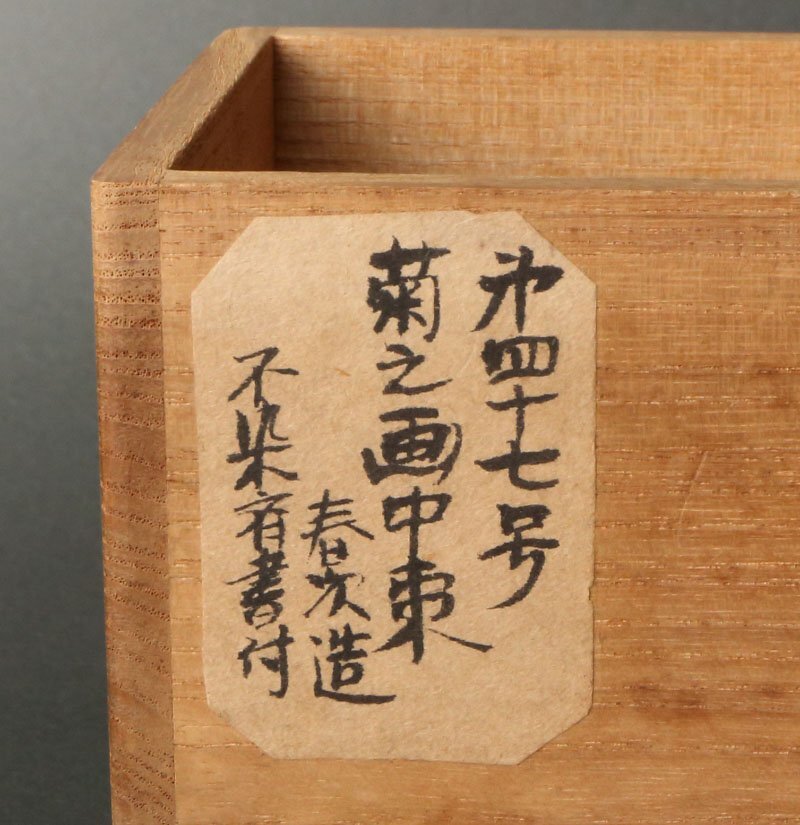 第四十七号
菊之画中棗
春次造
不染斎書付